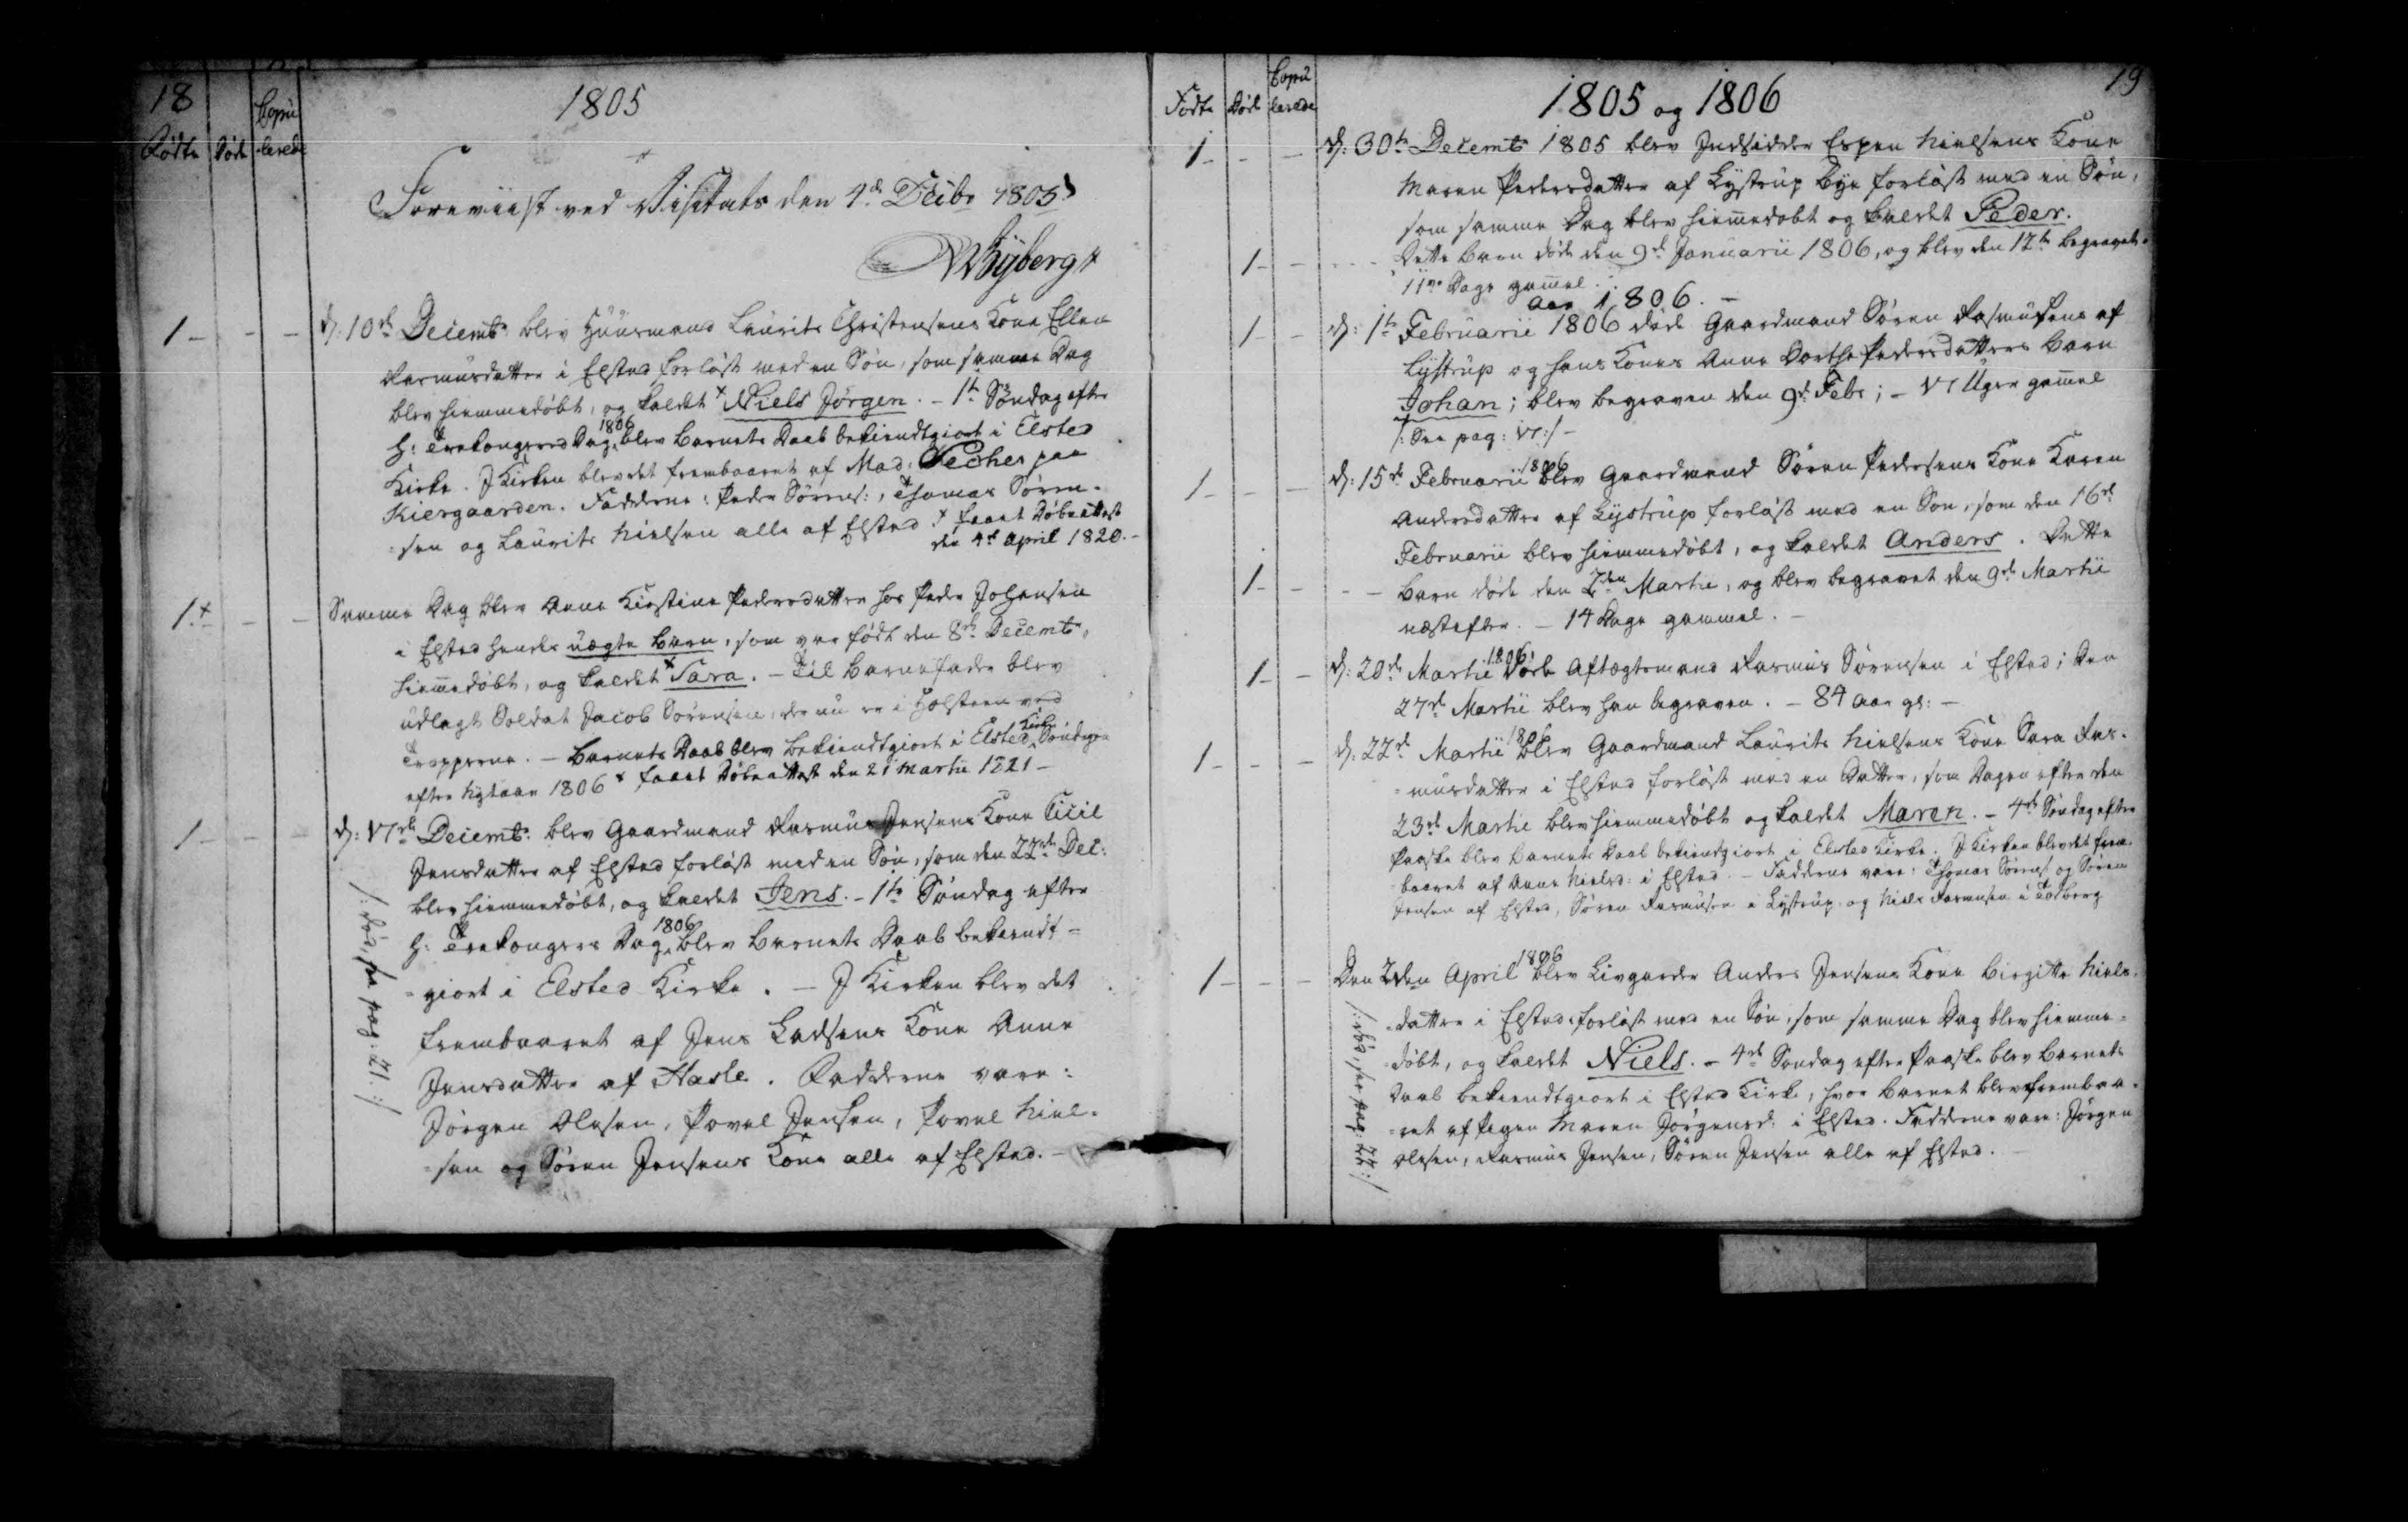 18
1805
Fødte
Døde
Copu
lerede
Foreviist ved Visitats den 4de Decbr 1805
1 - - - d: 10de Decemb: blev Huusmand Laurits Christensens Kone Ellen
Rasmusdatter i Elsted forløst med en Søn, som samme Dag
blev hiemmedøbt, og kaldet x Niels Jørgen. - 1te Søndag efter
H: Trekongers Dag 1806 blev Barnets Daab bekiendtgiort i Elsted
Kirke. I Kirken blev det frembaaret af Mad: paa
Kiergaarden. Fadderne: Peder Sørens:, Thomas Søren-
sen og Laurits Nielsen alle af Elsted. x faaet Døbeattest
den 4de April 1820.-
1.x - - Samme Dag blev Anne Kirstine Pedersdatter hos Peder Johansen
i Elsted hendes uægte Barn, som var født den 8de Decemb:,
hiemedøbt, og kaldet x Sara. - Til Barnefader blev
udlagt Soldat Jacob Sørensen, der nu er i Holsteen ved
Tropperne. - Barnets Daab blev bekiendtgiort i Elsted Kirke Søndagen
efter Nytaar 1806 x faaet Døbeattest den 21 Martii 1821 -
1 - - - d: 17de Decemb: blev Gaardmand Rasmus Jensens Kone Cicil
Jensdatter af Elsted forløst med en Søn, som den 22de Dec:
blev hiemmedøbt, og kaldet Jens. - 1te Søndag efter
H: Trekongers Dag 1806 blev Barnets Daab bekiendt-
giort i Elsted Kirke. - I Kirken blev det
frembaaret af Jens Ladsens Kone Anne
Jensdatter af Hasle. Fadderne vare:
Jørgen Olesen, Povel Jensen, Povel Niel-
sen og Søren Jensens Kone alle af Elsted. -
/: død, see pag: 21:/
19
1805 og 1806
Fødte
Døde
Copu
lerede
1 - - - d: 30te Decemb 1805 blev Indsidder Espen Nielsens Kone
Maren Pedersdatter af Lystrup Bye forløst med en Søn,
som samme Dag blev hiemedøbt og kaldet Peder.
1 - - - Dette Barn døde den 9de Januarii 1806, og blev den 12te begravet.
11 Dage gamel.
Aar 1806. -
1 - - d: 1te Februarii 1806 døde Gaardmand Søren Rasmusens af
Lystrup og hans Kones Anne Dorthe Pedersdatters Barn
Johan; blev begraven den 9de Febr; - Uger gamel
/: See pag: 17:/ -
1 - - - d: 15de Februarii 1806 blev Gaardmand Søren Pedersens Kone Karen
Andersdatter af Lystrup forløst med en Søn, som den 16de
Februarii blev hiemmedøbt, og kaldet Anders. Dette
1 - - - Barn døde den 2den Martii, og blev begravet den 9de Martii
næstefter. - 14 Dage gammel. -
1 - - d: 20de Martii 1806 døde Aftægtsmand Rasmus Sørensen i Elsted; den
27de Martii blev han begraven. - 84 Aar gl: -
1 - - - d: 22de Martii 1806 blev Gaardmand Laurits Nielsens Kone Sara Ras-
musdatter i Elsted forløst med en Datter, som Dagen efter den
23de Martii blev hiemmedøbt og kaldet Maren. - 4de Søndag efter
Paaske blev Barnets Daab bekiendtgiort i Elsted Kirke. I Kirken blev det frem-
baaret af Anne Nielsd: i Elsted. - Fadderne vare: Thomas Sørens: og Søren
Jensen af Elsted, Søren Rasmusen i Lystrup og Niels Rasmusen i Todberg
1 - - - Den 2den April 1806 blev Livgarder Anders Jensens Kone Birgitte Niels-
datter i Elsted forløst med en Søn, som samme Dag blev hiemme-
døbt, og kaldet Niels. - 4de Søndag efter Paaske blev Barnets
Daab bekiendtgiort i Elsted Kirke, hvor Barnet blev frembaa-
ret af Pigen Maren Jørgensd: i Elsted. Fadderne vare: Jørgen
Olesen, Rasmus Jensen, Søren Jensen alle af Elsted.
/: død, see pag: 22:/